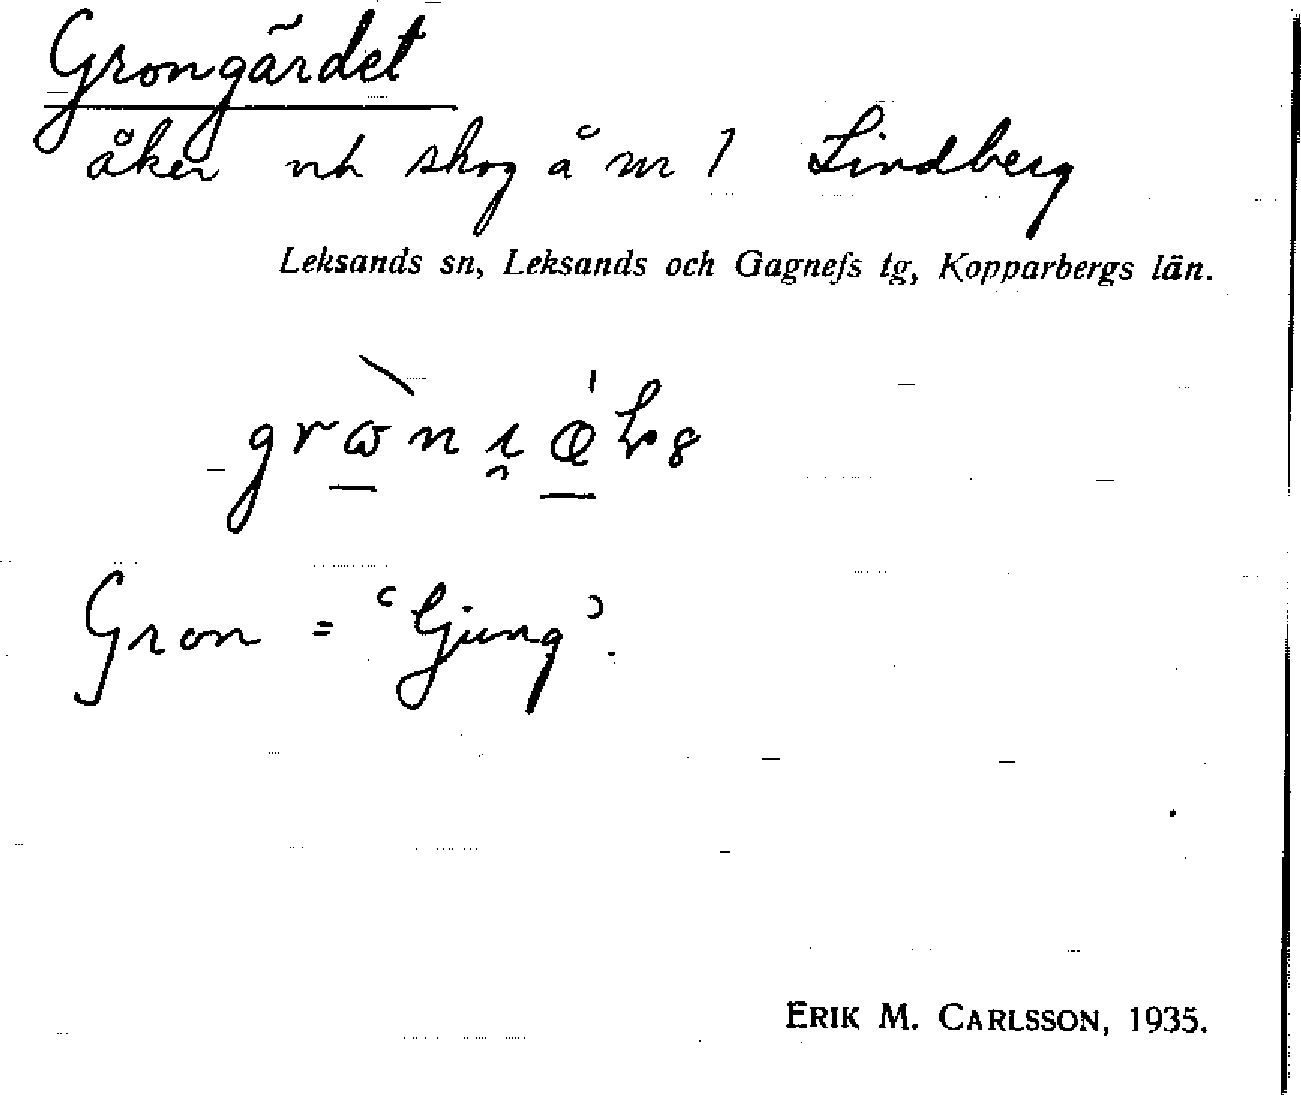 Grongärdet
åker och skog å nr 1 Lindberg
Leksands sn, Leksands och Gagnefs tg, Kopparbergs län.
Gron = 'ljung'.
ERIK M. CARLSSON, 1935.